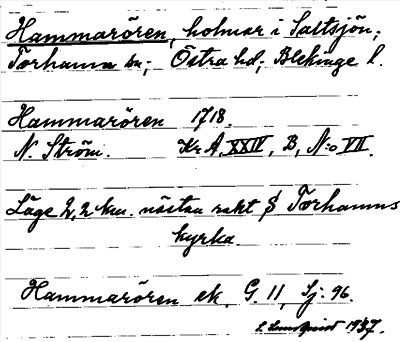 Hammarören, holmar i Saltsjön;
Torhamn sn; Östra hd; Blekinge l.
Hammarören 1718.
N. Ström. Kr. A. XXIV, B, N:o VII.
Läge 2,2 km. nästan rakt S Torhamns
kyrka
Hammarören ek. G. 11, Sj. 96.
Lundqvist 1937.